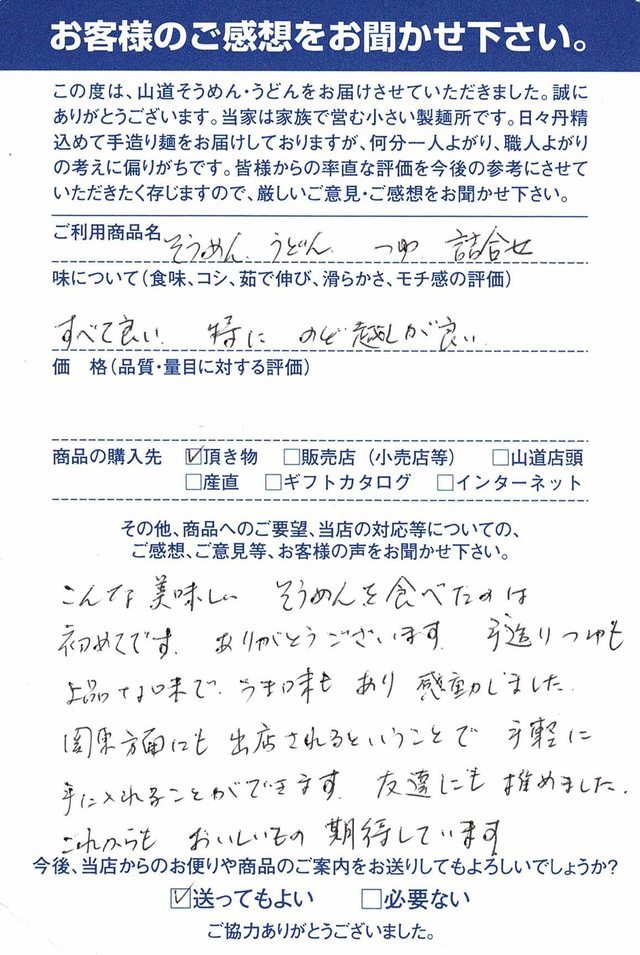 お客様のご感想をお聞かせ下さい。
この度は、山道そうめん・うどんをお届けさせていただきました。誠に
ありがとうございます。当家は家族で営む小さい製麺所です。日々丹精
込めて手造り麺をお届けしておりますが、何分一人よがり、職人よがり
の考えに偏りがちです。皆様からの率直な評価を今後の参考にさせて
いただきたく存じますので、厳しいご意見・ご感想をお聞かせ下さい。
ご利用商品名 そうめん、うどん、つゆ 詰合せ
味について(食味、コシ、茹で伸び、滑らかさ、モチ感の評価)
すべて良い 特に のど越しが良い
価 格(品質・量目に対する評価)
商品の購入先 ☑頂き物 □販売店(小売店等) □山道店頭
□産直 □ギフトカタログ □インターネット
その他、商品へのご要望、当店の対応等についての、
ご感想、ご意見等、お客様の声をお聞かせ下さい。
こんな美味しい そうめんを食べたのは
初めてです。ありがとうございます。手造りつゆも
上品な味で、うま味もあり 感動しました。
関東方面にも 出店されるということで 手軽に
手に入れることができます。友達にも 推めました。
これからも おいしいもの 期待しています
今後、当店からのお便りや商品のご案内をお送りしてもよろしいでしょうか?
☑送ってもよい □必要ない
ご協力ありがとうございました。